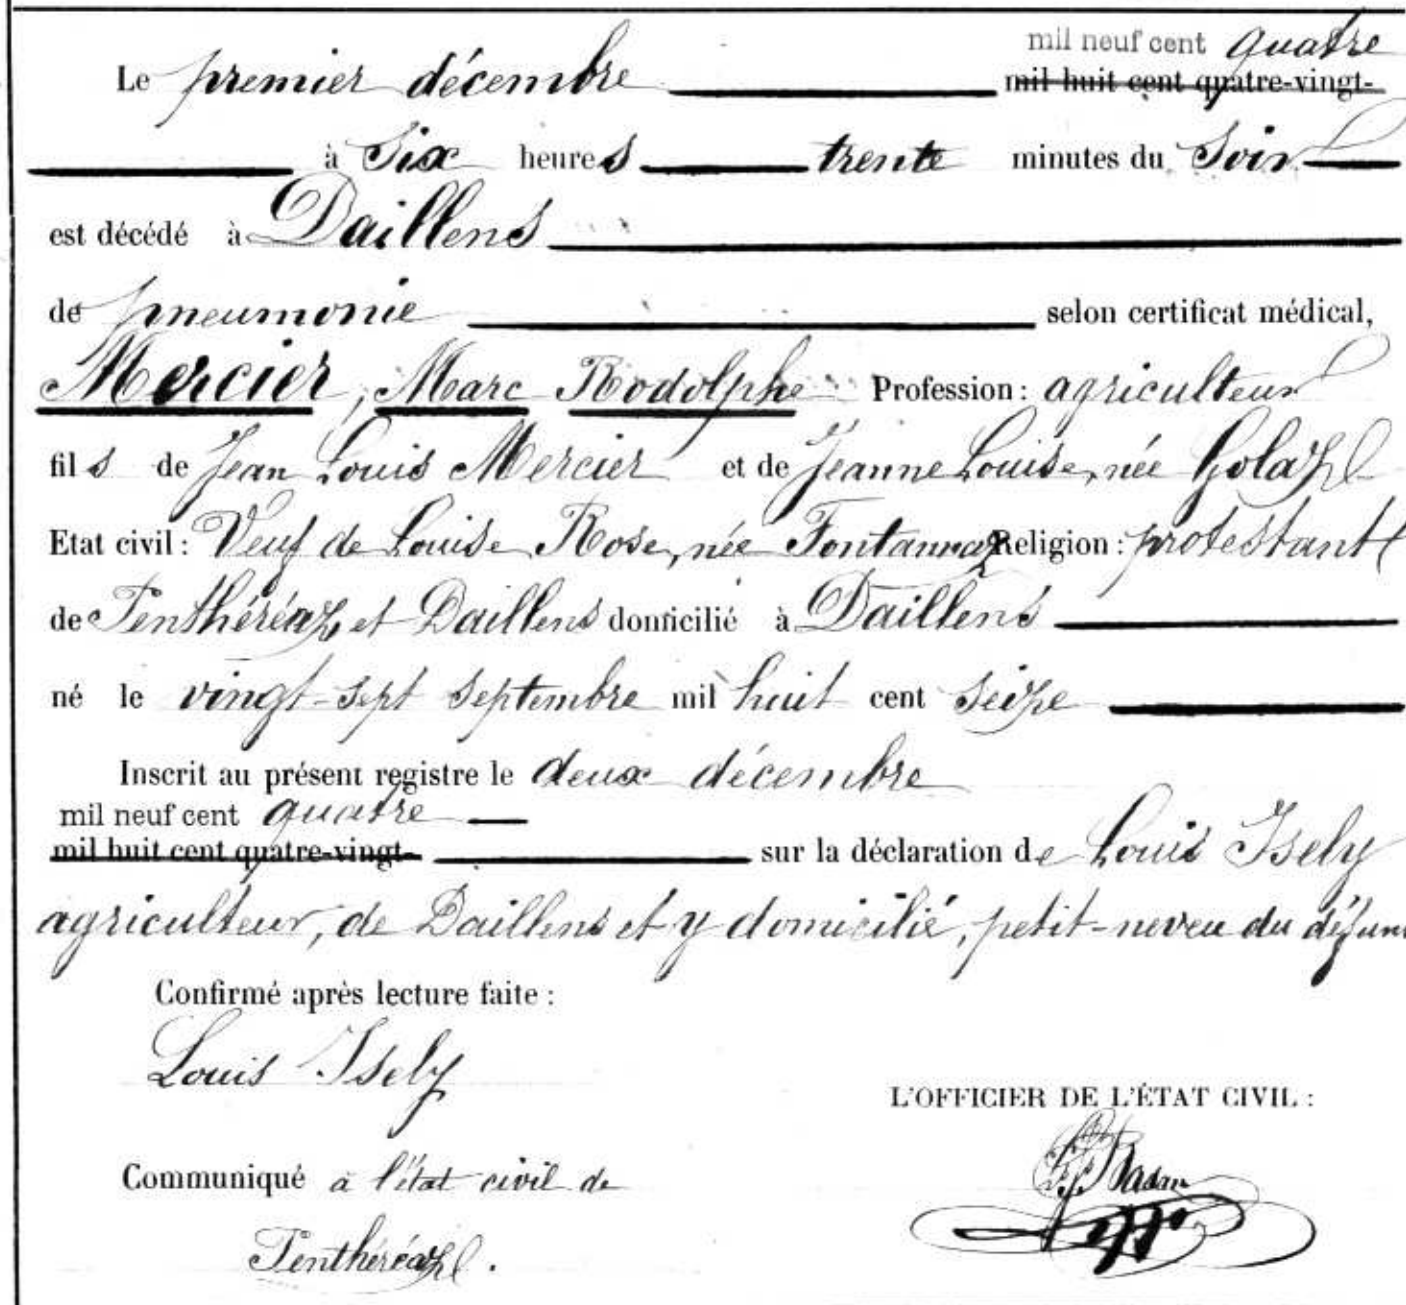 mil neuf cent quatre
Le premier décembre mil huit cent quatre-vingt-
à six heures trente minutes du soir
est décédé à Daillens
de pneumonie selon certificat médical,
Mercier, Marc Rodolphe Profession : agriculteur
fils de Jean Louis Mercier et de Jeanne Louise, née Golaz
Etat civil : Veuf de Louise Rose, née Fontannaz Religion : protestant
de Penthéréaz et Daillens domicilié à Daillens
né le vingt-sept septembre mil huit cent seize
Inscrit au présent registre le deux décembre
mil neuf cent quatre
mil huit cent quatre-vingt- sur la déclaration de Louis Isely
agriculteur, de Daillens et y domicilié, petit-neveu du défunt
Confirmé après lecture faite :
Louis Isely
L'OFFICIER DE L'ÉTAT CIVIL :
Communiqué à l'état civil de
Penthéréaz.